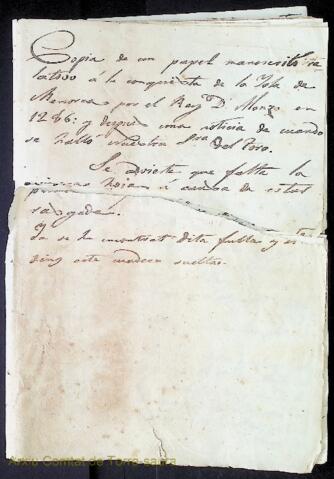 Copia de un papel manuscrito re
lativo á la conquista de la Isla de
Menorca por el Rey Dn Alonzo en
1286: y despues una noticia de cuando
se halló Nuestra Sra del Toro.
Se advierte que falta la
primera hoja á causa de estar
rasgada.
da se ha encontrat dita fulla y es
dins este mateix
Arxiu Comtat de Torre-saura